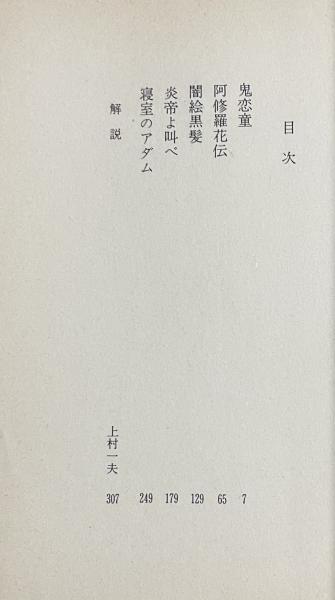 目次
鬼恋童 7
阿修羅花伝 65
闇絵黒髪 129
炎帝よ叫べ 179
寝室のアダム 249
解説 上村一夫 307